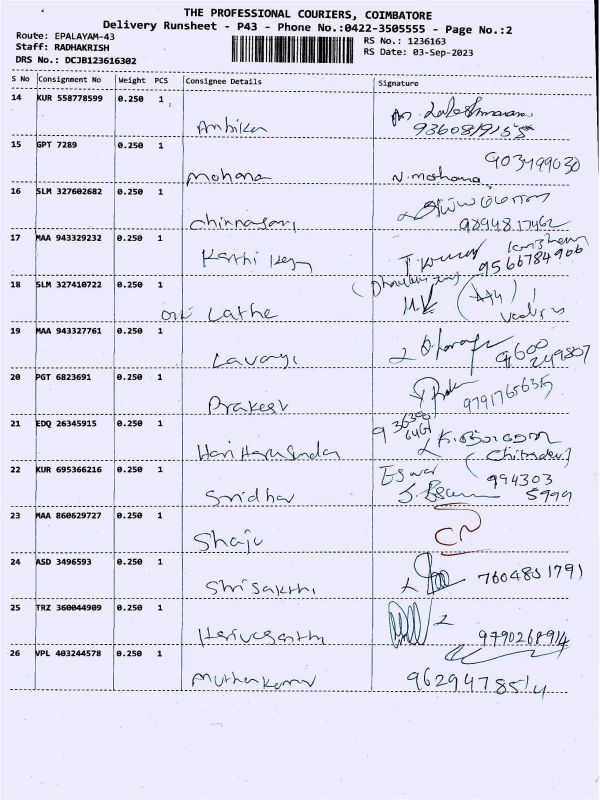 THE PROFESSIONAL COURIERS, COIMBATORE
Delivery Runsheet - P43 - Phone No.:0422-3505555 - Page No.:2
Route: EPALAYAM-43
RS No.: 1236163
Staff: RADHAKRISH
RS Date: 03-Sep-2023
DRS No.: DCJB123616302
S No Consignment No Weight PCS Consignee Details Signature
14 KUR 558778599 0.250 1
Ambika
15 GPT 7289 0.250 1
Mohana N. mothana
16 SLM 327602682 0.250 1
Chinnasami
17 MAA 943329232 0.250 1
9566784906
18 SLM 327410722 0.250 1
Lathe
19 MAA 943327761 0.250 1
Lavayi 9600
249807
20 PGT 6823691 0.250 1
Prakesh 9791765635
21 EDQ 26345915 0.250 1
22 KUR 695366216 0.250 1
Eswar 994303
Sridhar 5999
23 MAA 860629727 0.250 1
Shaju
24 ASD 3496593 0.250 1
Shrisakthi 7604851791
25 TRZ 360044909 0.250 1
9790268914
26 VPL 403244578 0.250 1
Muthukumar 9629478514